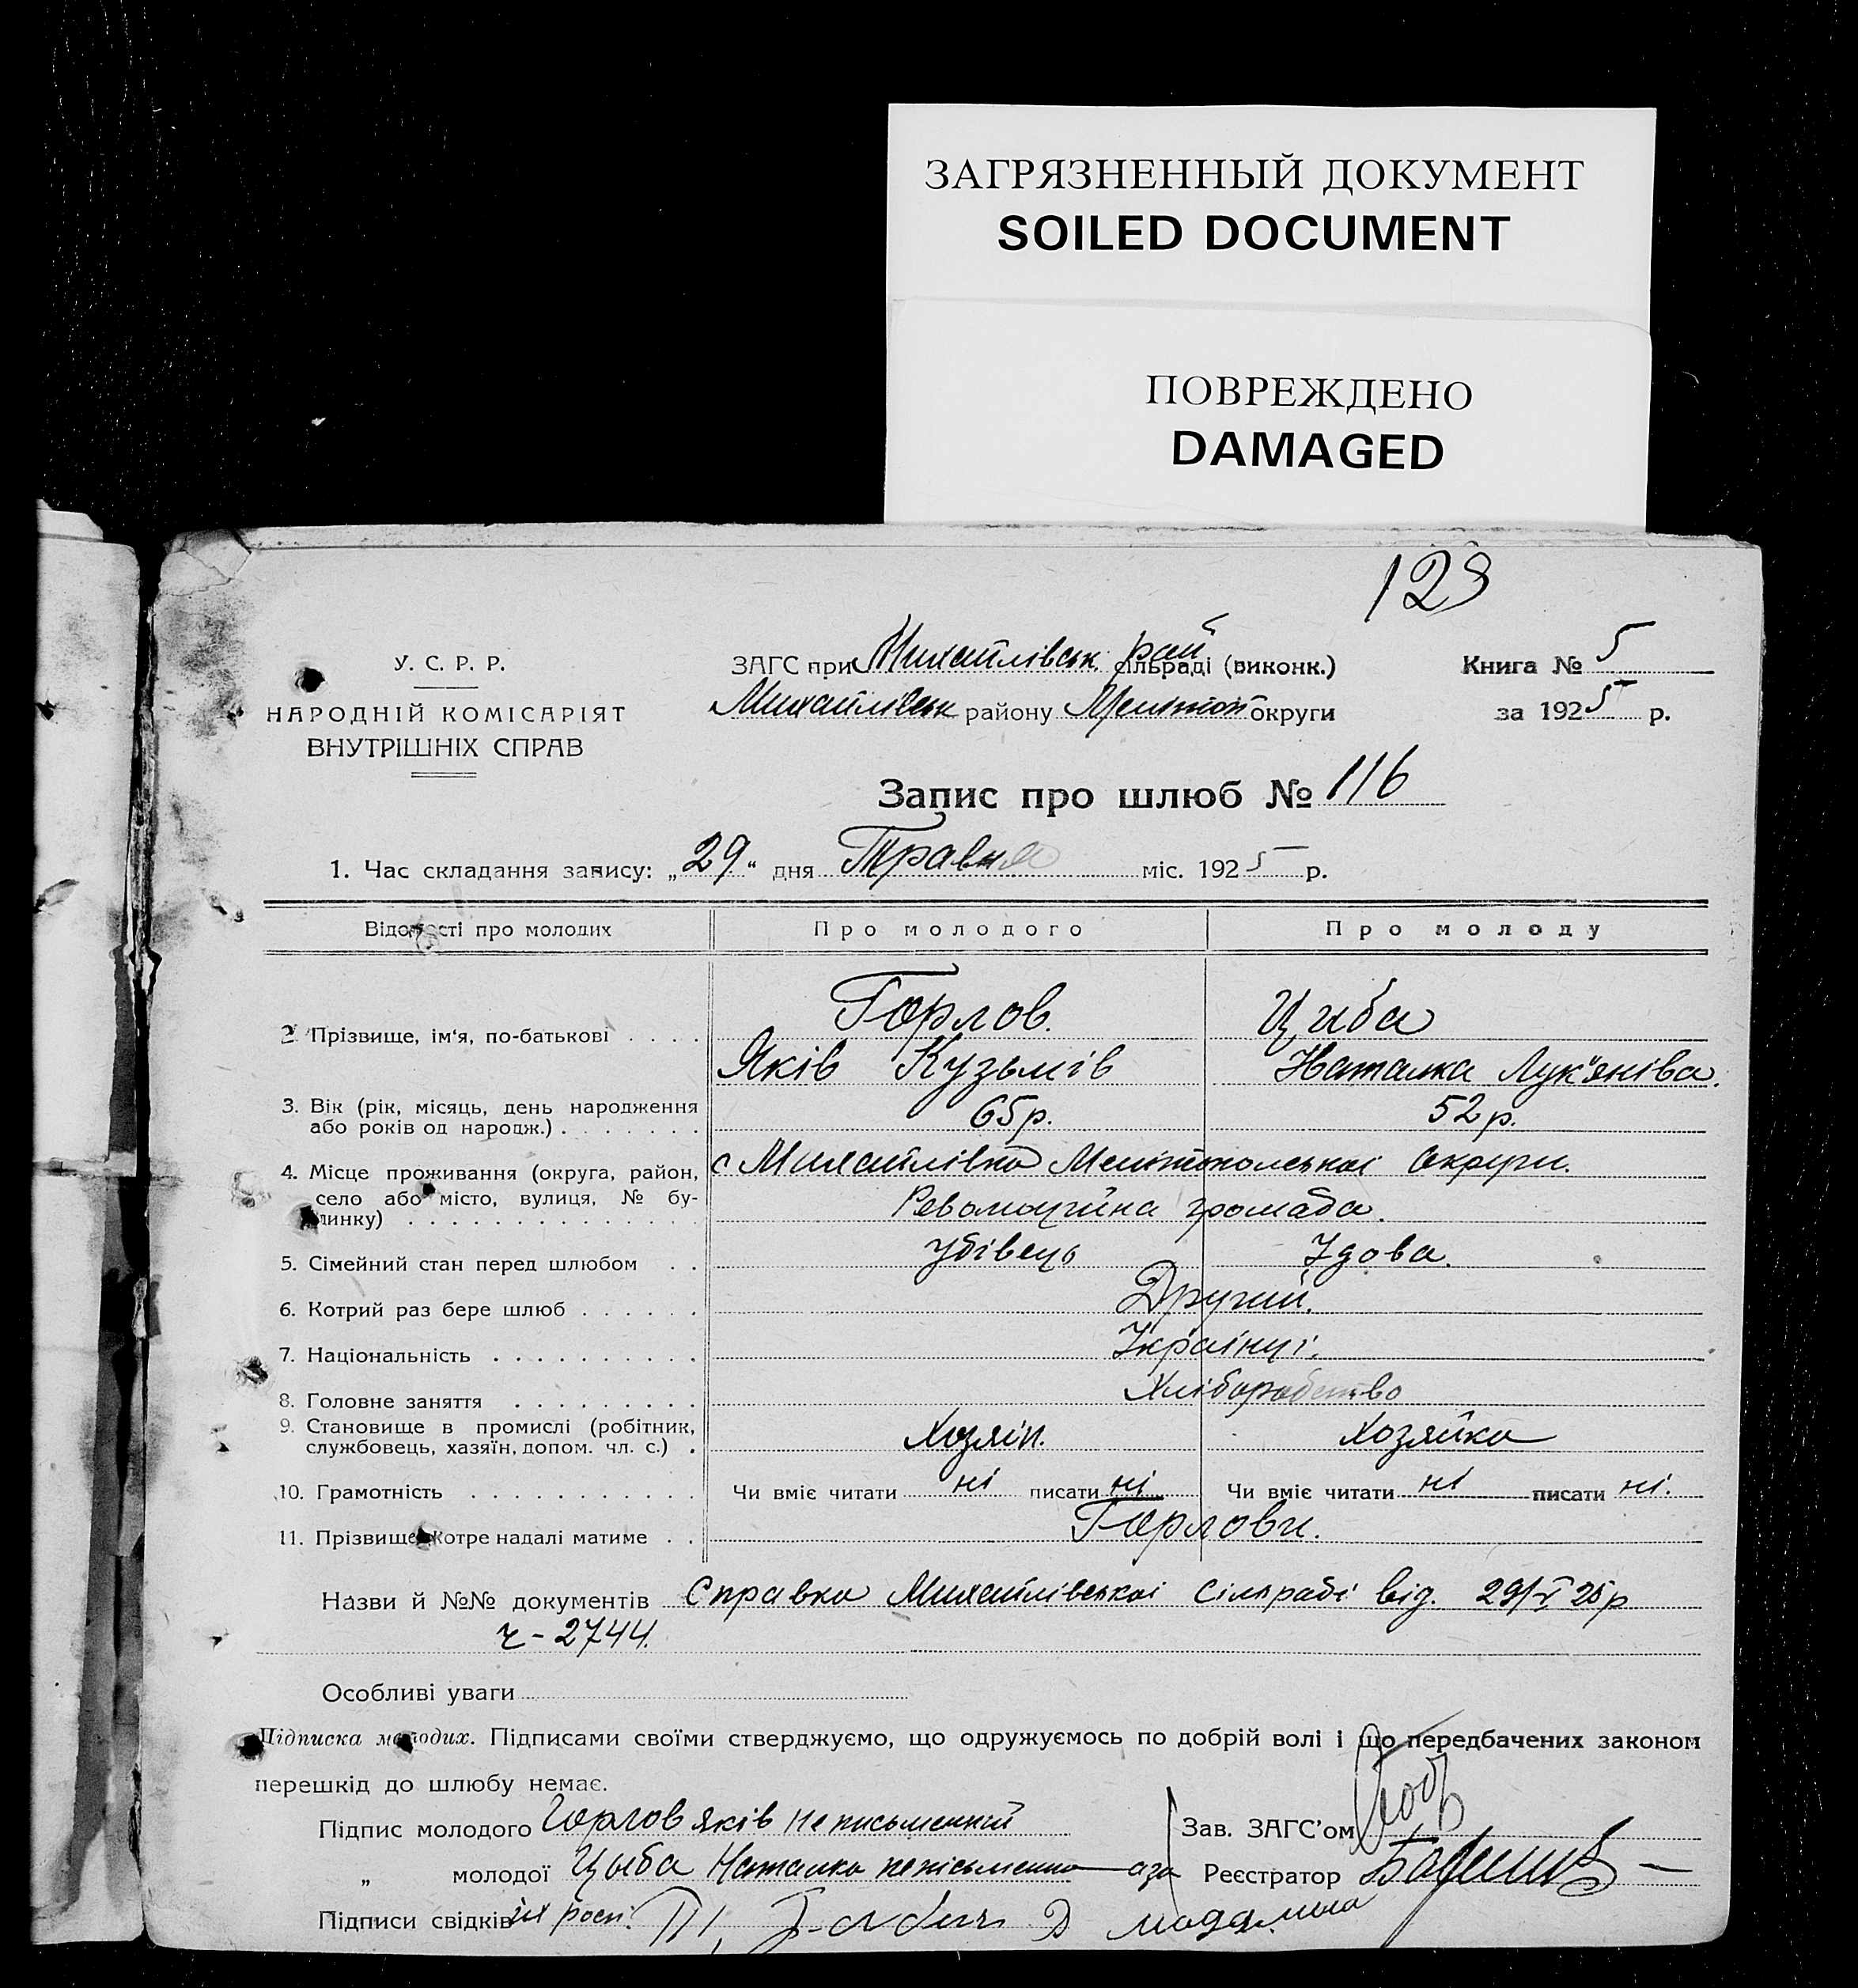 ЗАГРЯЗНЕННЫЙ ДОКУМЕНТ
SOILED DOCUMENT
ПОВРЕЖДЕНО
DAMAGED
123
У. С. Р. Р.
НАРОДНІЙ КОМІСАРІЯТ
ВНУТРІШНІХ СПРАВ
ЗАГС при Михайлівськ рай сільраді (виконк.)
Михайлівськ району Мелітоп округи
Книга № 5
за 1925 р.
Запис про шлюб № 116
1. Час складання запису: „29“ дня Травня міс. 1925 р.
Відомості про молодих Про молодого Про молоду
2. Прізвище, ім'я, по-батькові Горлов Циба
Яків Кузьмів Наталка Лук'янівa.
3. Вік (рік, місяць, день народження або років од народж.) 65 р. 52 р.
4. Місце проживання (округа, район, с Михайлівка Мелітопольскої Округи.
село або місто, вулиця, № будинку) Революційна громада.
5. Сімейний стан перед шлюбом Удівець Удова.
6. Котрий раз бере шлюб Другий.
7. Національність Українці.
8. Головне заняття Хліборобство
9. Становище в промислі (робітник, службовець, хазяїн, допом. чл. с.) Хозяін. Хозяйка
10. Грамотність Чи вміє читати ні писати ні Чи вміє читати ні писати ні.
11. Прізвище котре надалі матиме Горлови.
Назви й №№ документів Справка Михайлівської Сільраді від. 29/V 25 р
ч - 2744.
Особливі уваги
Підписка молодих. Підписами своїми стверджуємо, що одружуємось по добрій волі і що передбачених законом
перешкід до шлюбу немає.
Підпис молодого Горлов Яків неписьменний
Зав. ЗАГС'ом
„ молодої Цыба Наталка неписьменна а за
Реєстратор
Підписи свідків їх росп.